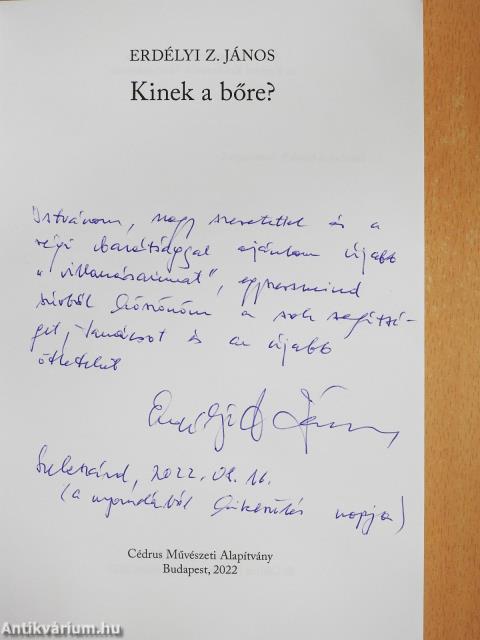 ERDÉLYI Z. JÁNOS
Kinek a bőre?
Istvánom, nagy szeretettel és a
régi barátsággal ajánlom újabb
"villanásaimat", egyszersmind
szívből köszönöm a sok segítsé-
get, tanácsot és az újabb
ötleteket
Erdélyi Z János
2022. 08. 16.
(a nyomdából kikerülés napja)
Cédrus Művészeti Alapítvány
Budapest, 2022
Antikvárium.hu